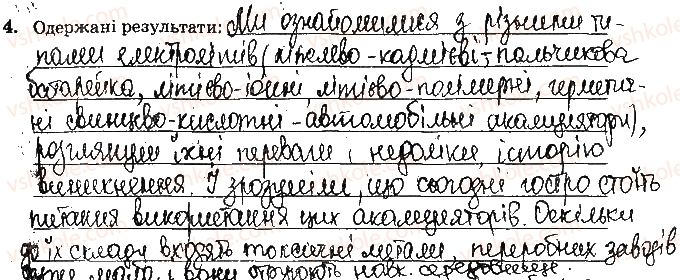 4. Одержані результати: Ми ознайомилися з різними ти-
пами електролітів (нікелево-кадмієві - пальчикова
батарейка, літієво-іонні літієво-полімерні, гермети-
чні свинцево-кислотні - автомобільні акамулятори),
розглянули їхні переваги і недоліки, історію
виникнення. І зрозуміли, що сьогодні гостро стоїть
питання використання цих акамуляторів. Оскільки
до їх складу входять токсичні метали, переробних заводів
дуже мало, і вони